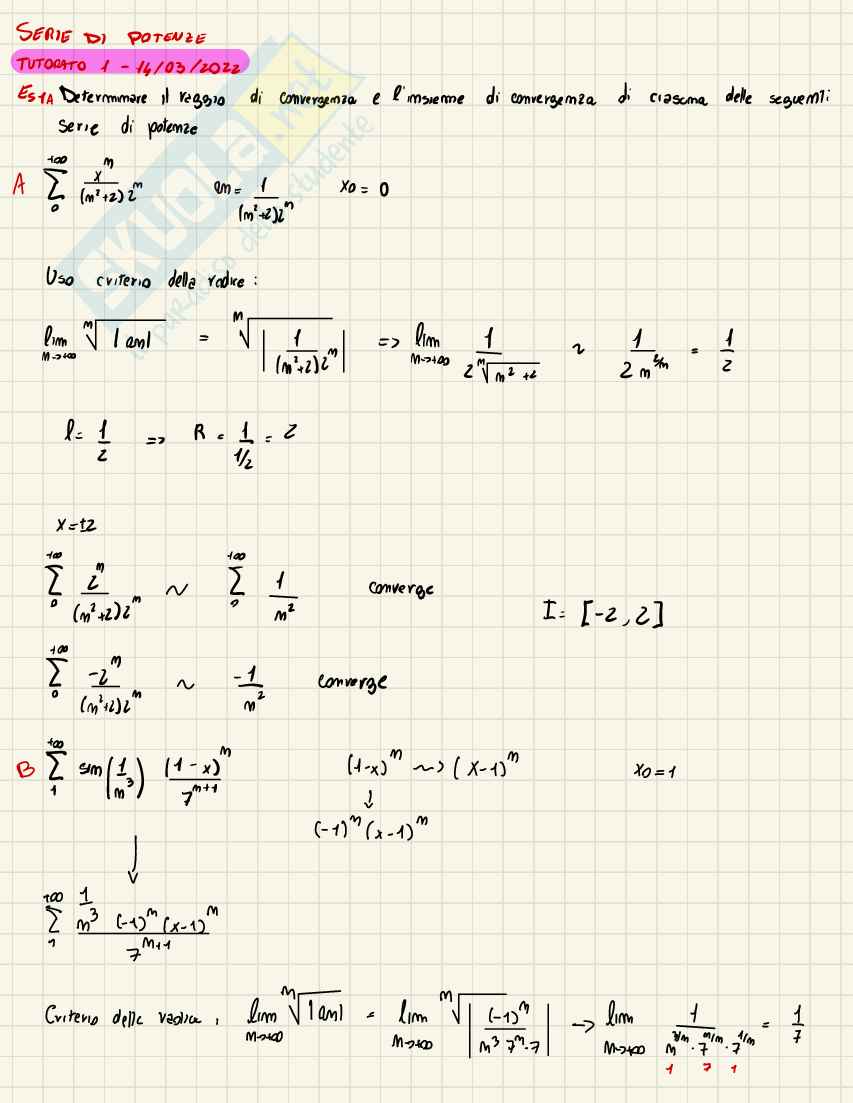 SERIE DI POTENZE
TUTORATO 1 - 14/03/2022
ES1A Determinare il raggio di convergenza e l'insieme di convergenza di ciascuna delle seguenti
serie di potenze
A +∞ ∑ 0 x^n / (n²+2) 2^n   an = 1 / (n²+2)2^n   x0 = 0
Uso criterio della radice :
lim n→+∞ ⁿ√|an| = ⁿ√|1 / (n²+2)2^n| => lim n→+∞ 1 / 2 ⁿ√(n²+2) ~ 1 / 2 n^(2/n) = 1/2
l = 1/2 => R = 1 / 1/2 = 2
x = ±2
+∞ ∑ 0 2^n / (n²+2)2^n ~ +∞ ∑ 0 1/n² converge
I = [-2, 2]
+∞ ∑ 0 -2^n / (n²+2)2^n ~ -1/n² converge
B +∞ ∑ 1 sin(1/n³) (1-x)^n / 7^(n+1)   (1-x)^n ~> (x-1)^n   x0 = 1
↓
(-1)^n (x-1)^n
↓
+∞ ∑ 1 1/n³ (-1)^n (x-1)^n / 7^(n+1)
Criterio della radice , lim n→+∞ ⁿ√|an| = lim n→+∞ ⁿ√|(-1)^n / n³ 7^n·7| → lim n→+∞ 1 / n^(3/n) · 7^(n/n) · 7^(1/n) = 1/7
1 7 1
SKUOLA.net
il paradiso dello studente